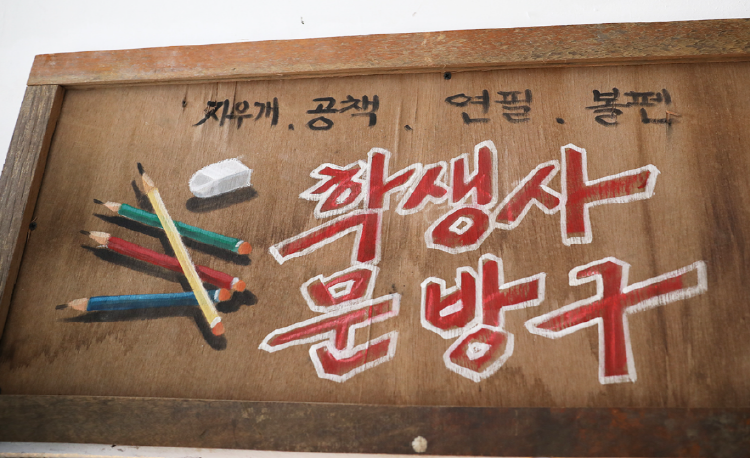 지우개. 공책. 연필. 볼펜
학생사
문방구